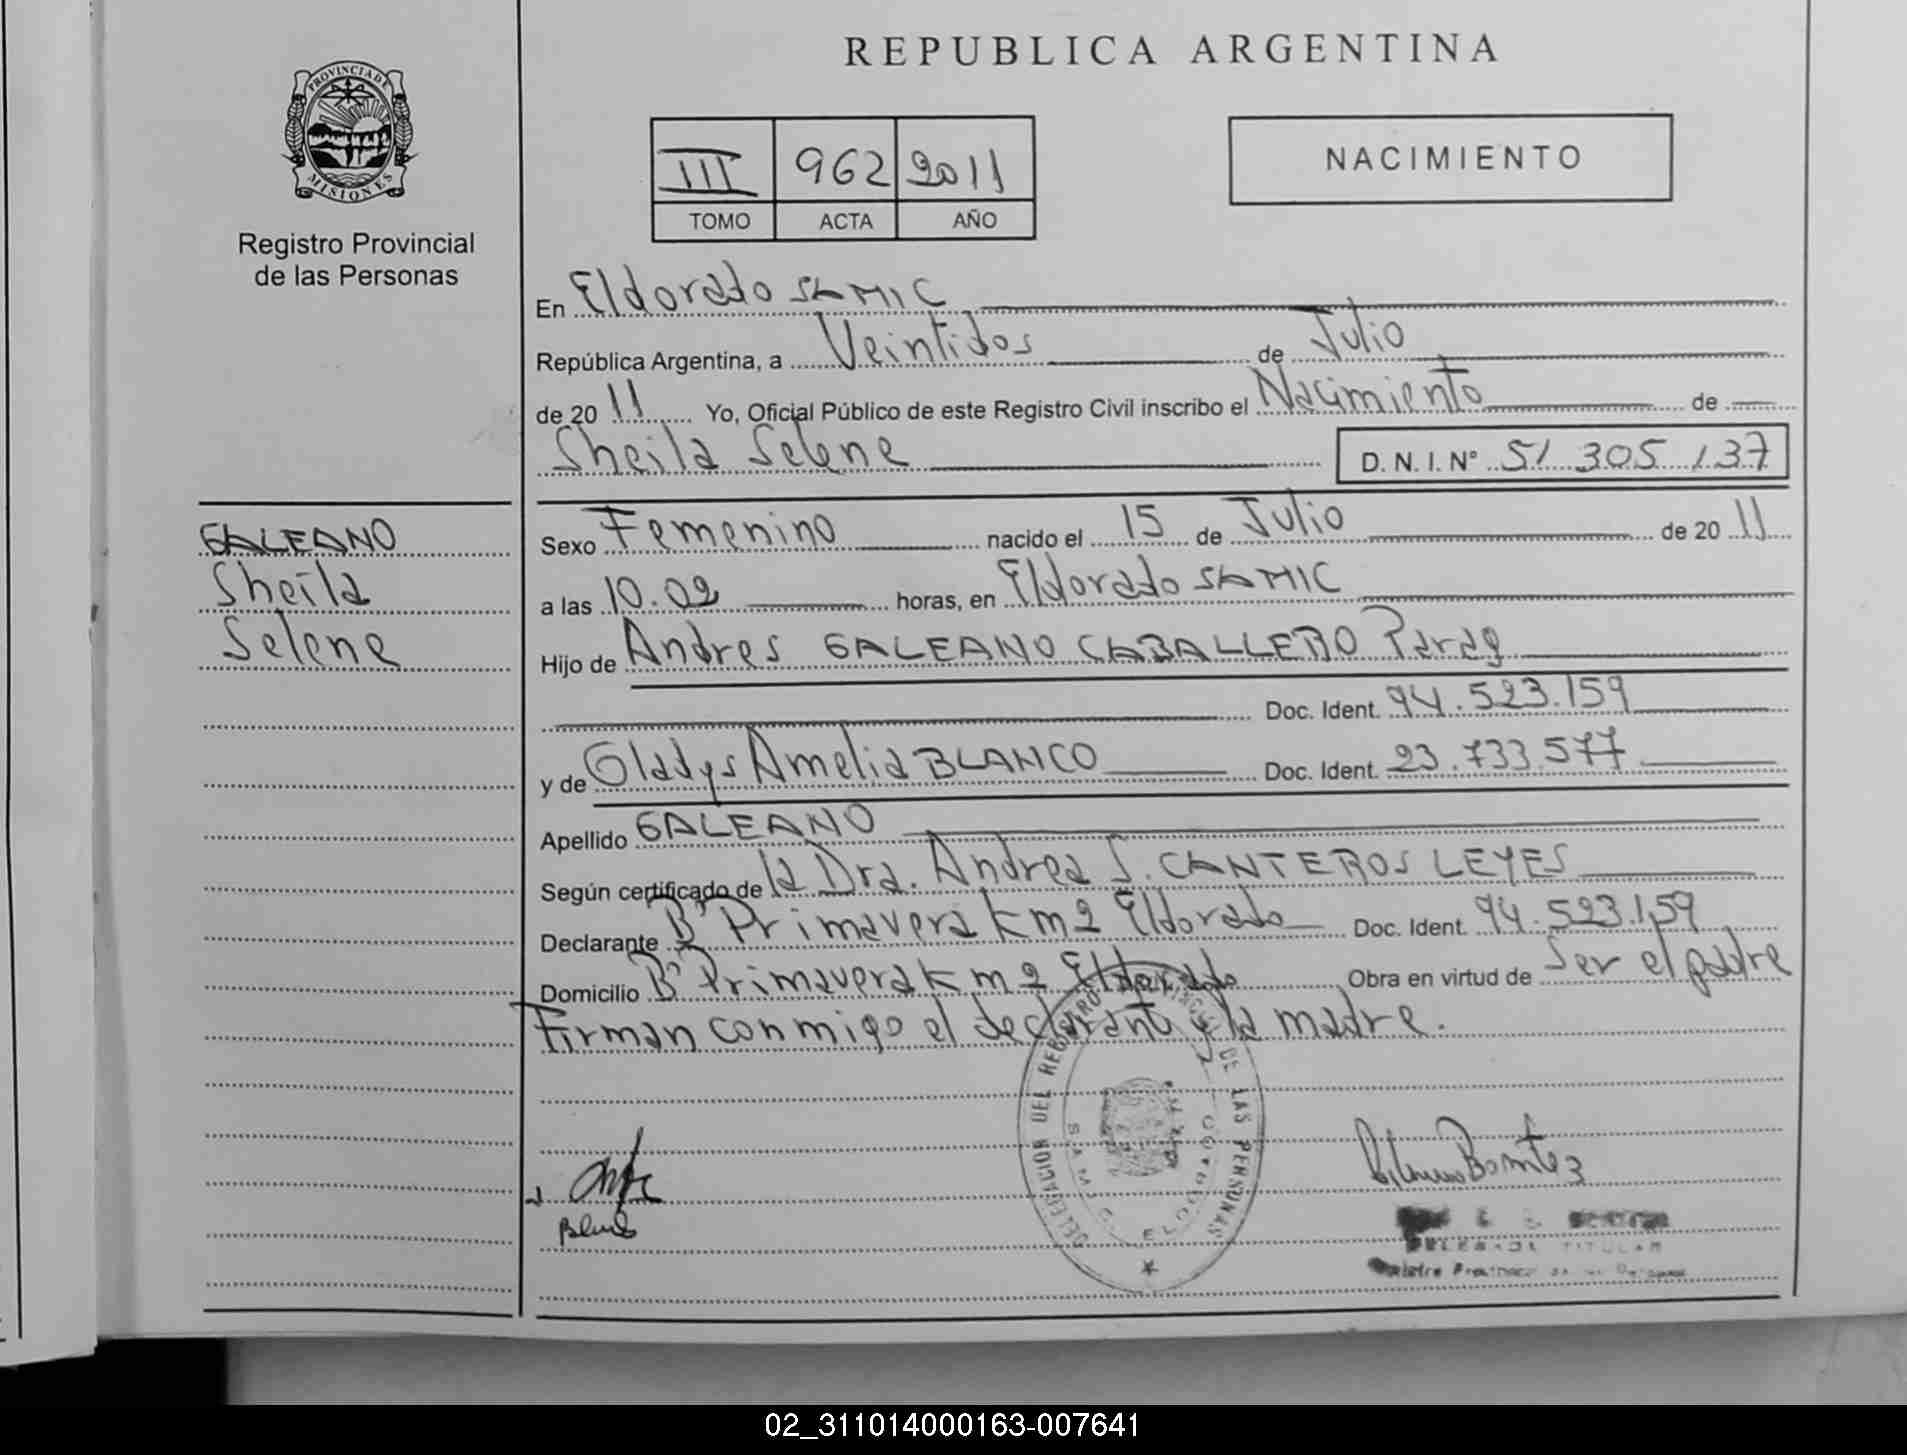 REPUBLICA ARGENTINA
PROVINCIA DE
MISIONES
Registro Provincial
de las Personas
III 962 2011
TOMO ACTA AÑO
NACIMIENTO
En Eldorado SAMIC
República Argentina, a Veintidos de Julio
de 20 11 Yo, Oficial Público de este Registro Civil inscribo el Nacimiento de
Sheila Selene D. N. I. Nº 51 305 137
GALEANO
Sheila
Selene
Sexo Femenino nacido el 15 de Julio de 20 11
a las 10.02 horas, en Eldorado SAMIC
Hijo de Andres GALEANO CABALLERO Parag
Doc. Ident. 94.523.159
y de Gladys Amelia BLANCO Doc. Ident. 23.733.577
Apellido GALEANO
Según certificado de la Dra. Andrea S. CANTEROS LEYES
Declarante Bº Primavera km 2 Eldorado Doc. Ident. 94.523.159
Domicilio Bº Primavera km 2 Eldorado Obra en virtud de Ser el padre
Firman conmigo el declarante y la madre.
DELEGACION DEL REGISTRO PROVINCIAL DE LAS PERSONAS
SAMIC ELDORADO
Benitez
TITULAR
02_311014000163-007641